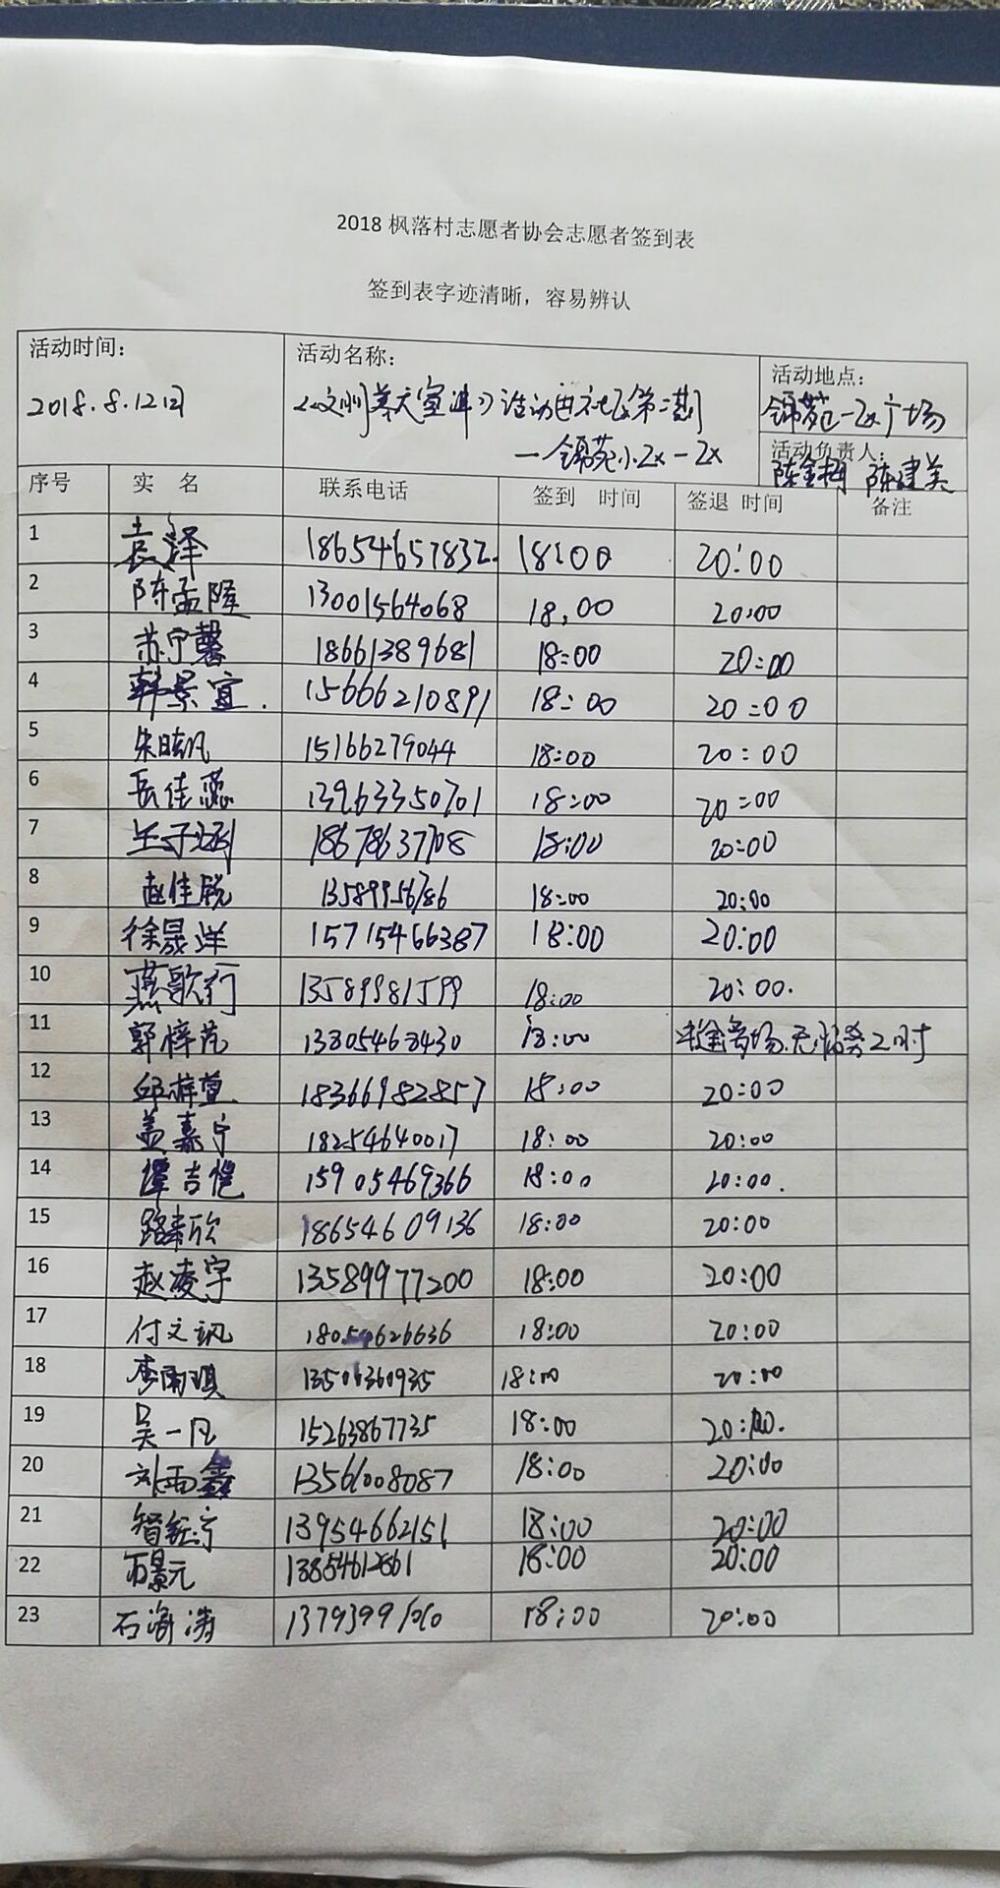 2018 枫落村志愿者协会志愿者签到表
签到表字迹清晰，容易辨认
活动时间：
2018.8.12日
活动名称：
活动 第二期
一锦苑小区一区
活动地点：
锦苑一区广场
活动负责人：
陈建美
序号 实 名 联系电话 签到 时间 签退 时间 备注
1 袁泽 18654657832 18:00 20:00
2 陈孟隆 13001564068 18.00 20:00
3 苏宁馨 18661389681 18:00 20:00
4 韩景宜. 15666210891 18:00 20:00
5 朱晓帆 15166279044 18:00 20:00
6 岳佳蕊 13963350701 18:00 20:00
7 王子涵 18678637708 18:00 20:00
8 赵佳锐 13589956786 18:00 20:00
9 徐晟洋 15715466387 18:00 20:00
10 燕歌行 13589981599 18:00 20:00.
11 郭梓芃 18:00
12 邱梓萱 18366982857 18:00 20:00
13 盖嘉宁 18254640017 18:00 20:00
14 谭吉恺 15905469366 18:00 20:00.
15 路 欣 18654609136 18:00 20:00
16 赵凌宇 13589977200 18:00 20:00
17 付文 18:00 20:00
18 李雨琪 13506360935 18:00 20:00
19 吴一凡 15263867735 18:00 20:00.
20 刘雨鑫 13561008087 18:00 20:00
21 智钰宁 13954662151 18:00 20:00
22 万景元 18:00 20:00
23 石海涛 18:00 20:00